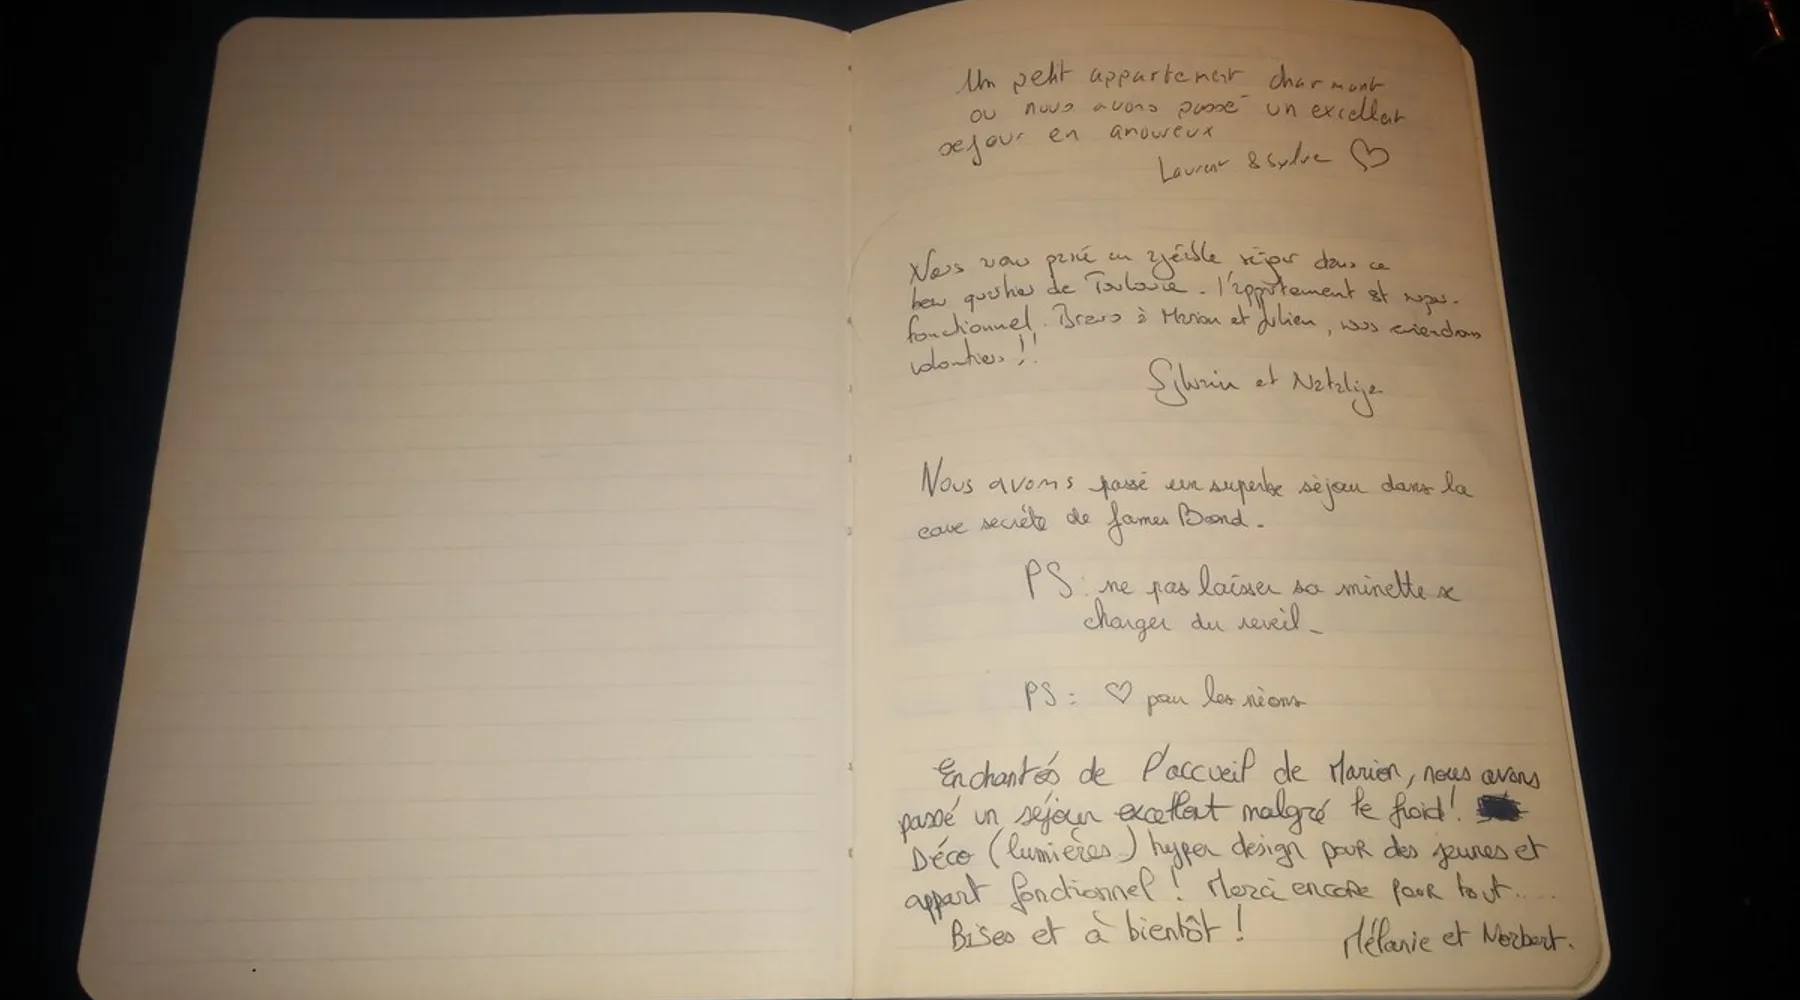 Un petit appartement charmant
ou nous avons passé un excellent
sejour en amoureux
Laurent & Sylvie ♡
Nous avons passé un agréable séjour dans ce
beau quartier de Toulouse. l'appartement est super-
fonctionnel. Bravo à Marion et Julien, nous reviendrons
volontiers !!
Sylvain et Natalija
Nous avons passé un superbe séjour dans la
cave secrète de James Bond.
PS : ne pas laisser sa minette se
charger du reveil_
PS : ♡ pour les néons
Enchantés de l'accueil de Marion, nous avons
passé un séjour excellent malgré le froid !
Déco (lumières..) hyper design pour des jeunes et
appart fonctionnel ! Merci encore pour tout....
Bises et à bientôt !
Mélanie et Norbert.